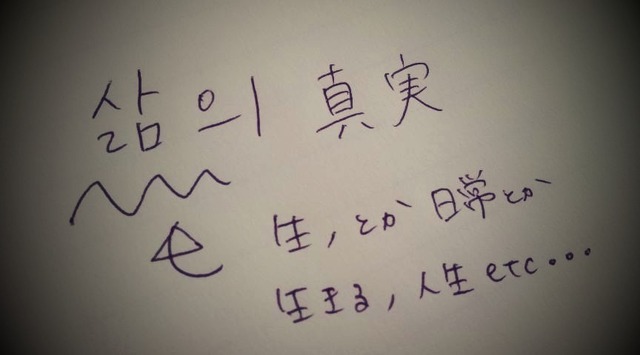 삶의 真実
生,とか 日常とか
生まる,人生 etc...